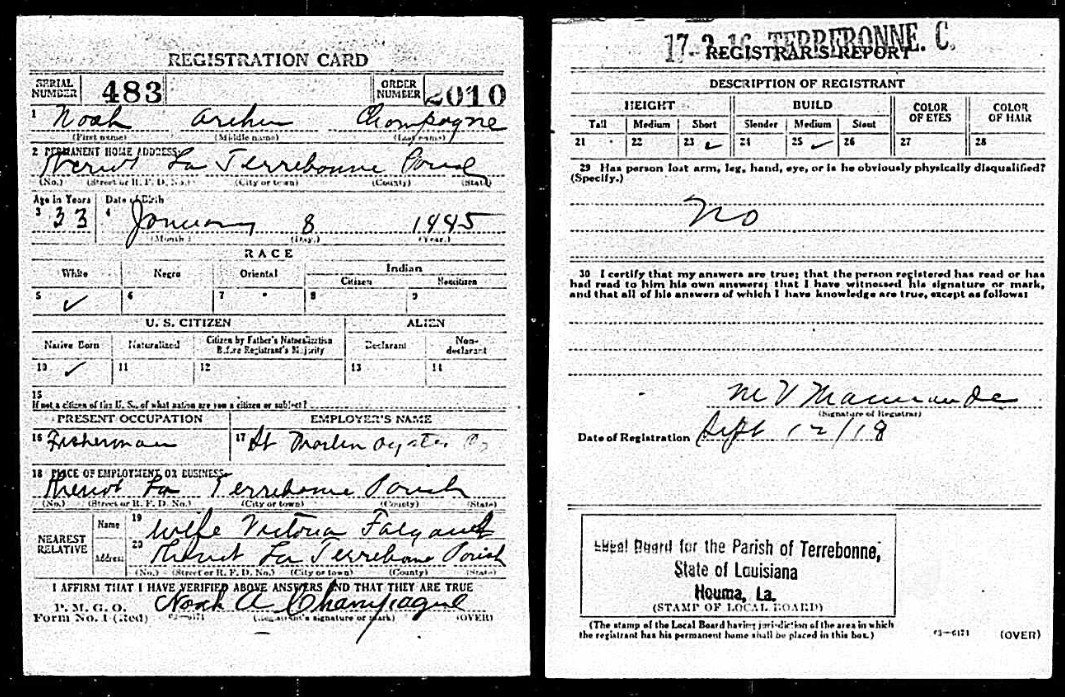 REGISTRATION CARD
SERIAL NUMBER 483 ORDER NUMBER 2010
1 Noah Archer Champagne
(First name) (Middle name) (Last name)
2 PERMANENT HOME ADDRESS:
Theriot La Terrebonne Parish
(No.) (Street or R. F. D. No.) (City or town) (County) (State)
Age in Years Date of Birth
3 33 4 January 8 1885
(Month) (Day.) (Year.)
RACE
White Negro Oriental Indian
Citizen Noncitizen
5 ✓ 6 7 8 9
U. S. CITIZEN ALIEN
Native Born Naturalized Citizen by Father's Naturalization Before Registrant's Majority Declarant Non-declarant
10 ✓ 11 12 13 14
15
If not a citizen of the U. S., of what nation are you a citizen or subject?
PRESENT OCCUPATION EMPLOYER'S NAME
16 Fisherman 17 St Martin Oyster Co
18 PLACE OF EMPLOYMENT OR BUSINESS:
Theriot La Terrebonne Parish
(No.) (Street or R. F. D. No.) (City or town) (County) (State)
NEAREST RELATIVE
Name 19 Wife Victoria Falgout
Address 20 Theriot La Terrebone Parish
(No.) (Street or R. F. D. No.) (City or town) (County) (State)
I AFFIRM THAT I HAVE VERIFIED ABOVE ANSWERS AND THAT THEY ARE TRUE
P. M. G. O.
Form No. 1 (Red) 03—6171 Noah A Champagne
(Registrant's signature or mark) (OVER)
17-2-16 TERREBONNE. C.
REGISTRAR'S REPORT
DESCRIPTION OF REGISTRANT
HEIGHT BUILD COLOR OF EYES COLOR OF HAIR
Tall Medium Short Slender Medium Stout
21 22 23 ✓ 24 25 ✓ 26 27 28
29 Has person lost arm, leg, hand, eye, or is he obviously physically disqualified?
(Specify.)
No
30 I certify that my answers are true; that the person registered has read or has
had read to him his own answers; that I have witnessed his signature or mark,
and that all of his answers of which I have knowledge are true, except as follows:
M V Marmande
(Signature of Registrar)
Date of Registration Sept 12/18
Local Board for the Parish of Terrebonne,
State of Louisiana
Houma, La.
(STAMP OF LOCAL BOARD)
(The stamp of the Local Board having jurisdiction of the area in which
the registrant has his permanent home shall be placed in this box.)
03—6171 (OVER)